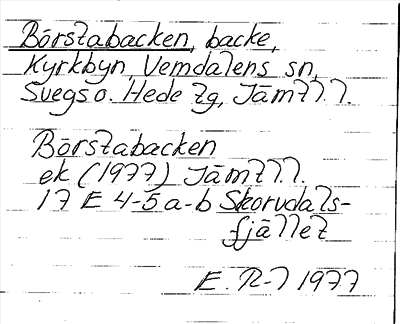 Börstabacken, backe,
Kyrkbyn, Vemdalens sn,
Svegs o. Hede tg, Jämtl.
Börstabacken
ek (1977) Jämtl.
17 E 4-5 a-b Skorvdals-
fjället
E. R-l 1977